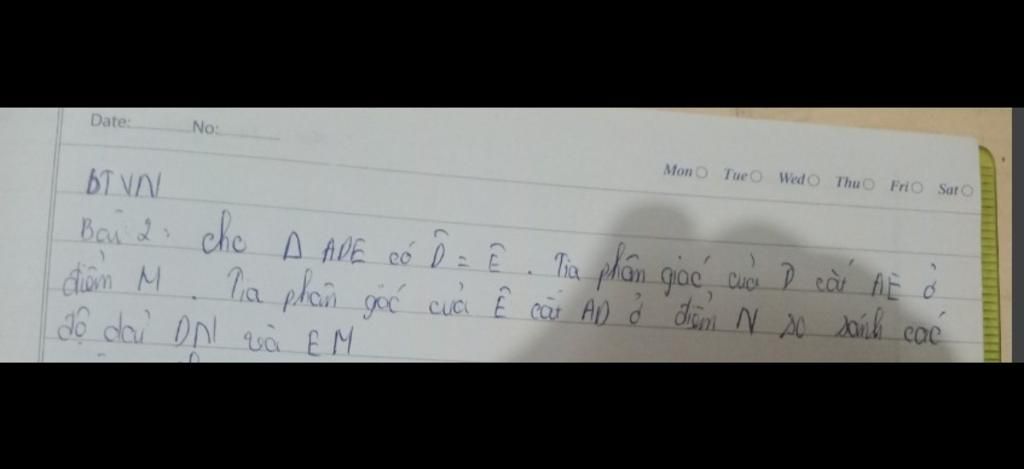 Date: No:
Mon Tue Wed Thu Fri Sat
BTVN
Bài 2: cho Δ ADE có D̂ = Ê. Tia phân giác của D cắt AE ở
điểm M. Tia phân giác của Ê cắt AD ở điểm N so sánh các
độ dài DN và EM